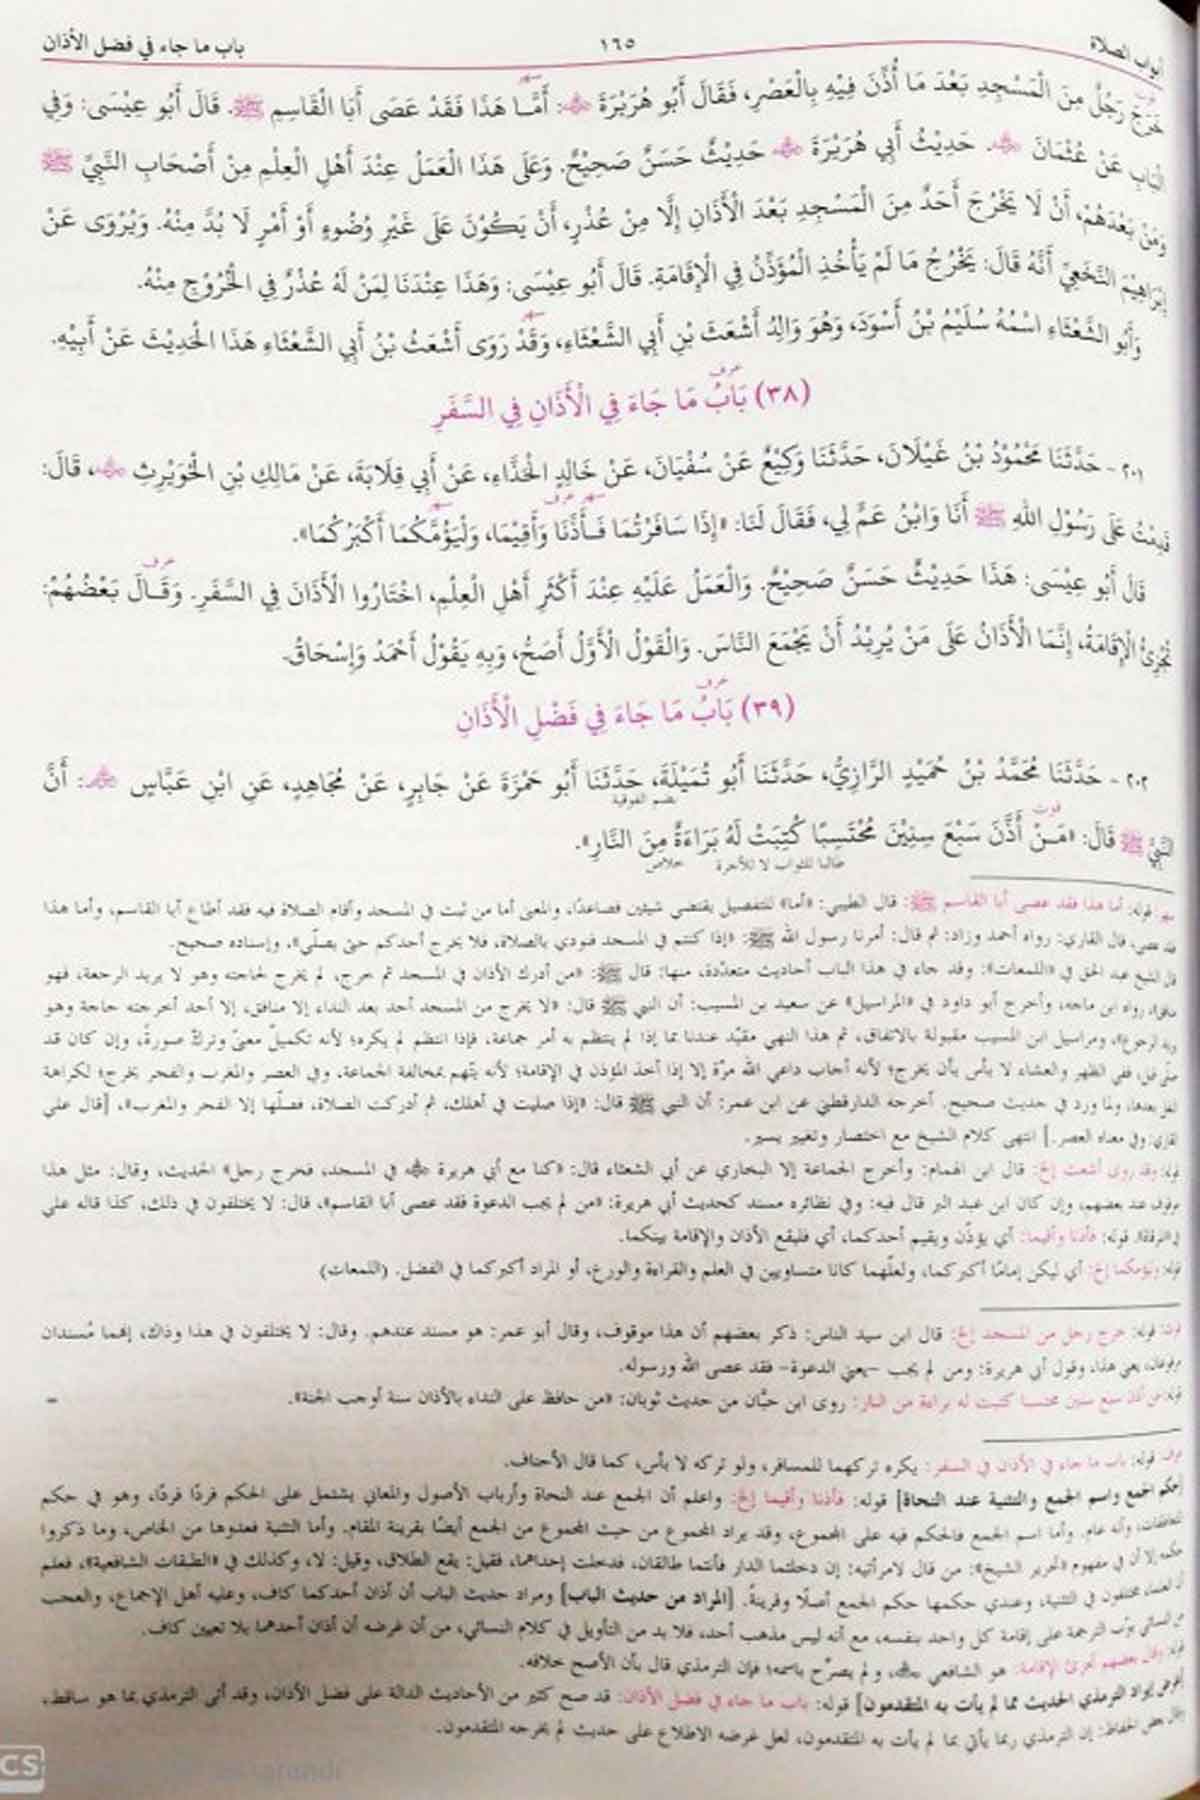 أبواب الصلاة ١٦٥ باب ما جاء في فضل الأذان
خَرَجَ رَجُلٌ مِنَ الْمَسْجِدِ بَعْدَ مَا أُذِّنَ فِيْهِ بِالْعَصْرِ، فَقَالَ أَبُو هُرَيْرَةَ ﷺ: أَمَّا هَذَا فَقَدْ عَصَى أَبَا الْقَاسِمِ ﷺ. قَالَ أَبُو عِيْسَى: وَفِي
الْبَابِ عَنْ عُثْمَانَ. حَدِيْثُ أَبِي هُرَيْرَةَ حَدِيْثٌ حَسَنٌ صَحِيْحٌ. وَعَلَى هَذَا الْعَمَلُ عِنْدَ أَهْلِ الْعِلْمِ مِنْ أَصْحَابِ النَّبِيِّ ﷺ
وَمَنْ بَعْدَهُمْ، أَنْ لَا يَخْرُجَ أَحَدٌ مِنَ الْمَسْجِدِ بَعْدَ الْأَذَانِ إِلَّا مِنْ عُذْرٍ، أَنْ يَكُوْنَ عَلَى غَيْرِ وُضُوءٍ أَوْ أَمْرٍ لَا بُدَّ مِنْهُ. وَيُرْوَى عَنْ
إِبْرَاهِيْمَ النَّخَعِيِّ أَنَّهُ قَالَ: يَخْرُجُ مَا لَمْ يَأْخُذِ الْمُؤَذِّنُ فِي الْإِقَامَةِ. قَالَ أَبُو عِيْسَى: وَهَذَا عِنْدَنَا لِمَنْ لَهُ عُذْرٌ فِي الْخُرُوْجِ مِنْهُ.
وَأَبُو الشَّعْثَاءِ اسْمُهُ سُلَيْمُ بْنُ أَسْوَدَ، وَهُوَ وَالِدُ أَشْعَثَ بْنِ أَبِي الشَّعْثَاءِ، وَقَدْ رَوَى أَشْعَثُ بْنُ أَبِي الشَّعْثَاءِ هَذَا الْحَدِيْثَ عَنْ أَبِيْهِ.
(٣٨) بَابُ مَا جَاءَ فِي الْأَذَانِ فِي السَّفَرِ
٢٠١- حَدَّثَنَا مَحْمُوْدُ بْنُ غَيْلَانَ، حَدَّثَنَا وَكِيْعٌ عَنْ سُفْيَانَ، عَنْ خَالِدٍ الْحَذَّاءِ، عَنْ أَبِي قِلَابَةَ، عَنْ مَالِكِ بْنِ الْحُوَيْرِثِ، قَالَ:
قَدِمْتُ عَلَى رَسُوْلِ اللهِ ﷺ أَنَا وَابْنُ عَمٍّ لِي، فَقَالَ لَنَا: «إِذَا سَافَرْتُمَا فَأَذِّنَا وَأَقِيْمَا، وَلْيَؤُمَّكُمَا أَكْبَرُكُمَا».
قَالَ أَبُو عِيْسَى: هَذَا حَدِيْثٌ حَسَنٌ صَحِيْحٌ. وَالْعَمَلُ عَلَيْهِ عِنْدَ أَكْثَرِ أَهْلِ الْعِلْمِ، اخْتَارُوا الْأَذَانَ فِي السَّفَرِ. وَقَالَ بَعْضُهُمْ:
تُجْزِئُ الْإِقَامَةُ، إِنَّمَا الْأَذَانُ عَلَى مَنْ يُرِيْدُ أَنْ يَجْمَعَ النَّاسَ. وَالْقَوْلُ الْأَوَّلُ أَصَحُّ، وَبِهِ يَقُوْلُ أَحْمَدُ وَإِسْحَاقُ.
(٣٩) بَابُ مَا جَاءَ فِي فَضْلِ الْأَذَانِ
٢٠٢- حَدَّثَنَا مُحَمَّدُ بْنُ حُمَيْدٍ الرَّازِيُّ، حَدَّثَنَا أَبُو تُمَيْلَةَ، حَدَّثَنَا أَبُو حَمْزَةَ عَنْ جَابِرٍ، عَنْ مُجَاهِدٍ، عَنِ ابْنِ عَبَّاسٍ: أَنَّ
بضم الفوقية
النَّبِيَّ ﷺ قَالَ: «مَنْ أَذَّنَ سَبْعَ سِنِيْنَ مُحْتَسِبًا كُتِبَتْ لَهُ بَرَاءَةٌ مِنَ النَّارِ».
طالبا للثواب لا للأجرة خلاص
قوله: أما هذا فقد عصى أبا القاسم ﷺ: قال الطيبي: «أما» للتفصيل يقتضي شيئين فصاعدًا، والمعنى أما من ثبت في المسجد وأقام الصلاة فيه فقد أطاع أبا القاسم، وأما هذا
فقد عصى، قال القاري: رواه أحمد وزاد: ثم قال: أمرنا رسول الله ﷺ: «إذا كنتم في المسجد فنودي بالصلاة، فلا يخرج أحدكم حتى يصلّي»، وإسناده صحيح.
قال الشيخ عبد الحق في «اللمعات»: وقد جاء في هذا الباب أحاديث متعدّدة، منها: قال ﷺ: «من أدرك الأذان في المسجد ثم خرج، لم يخرج لحاجته وهو لا يريد الرجعة، فهو
منافق»، رواه ابن ماجه، وأخرج أبو داود في «المراسيل» عن سعيد بن المسيب: أن النبي ﷺ قال: «لا يخرج من المسجد أحد بعد النداء إلا منافق، إلا أحد أخرجته حاجة وهو
يريد الرجوع»، ومراسيل ابن المسيب مقبولة بالاتفاق، ثم هذا النهي مقيّد عندنا بما إذا لم ينتظم به أمر جماعة، فإذا انتظم لم يكره؛ لأنه تكميلٌ معنىً وتركٌ صورةً، وإن كان قد
صلّى قبل، ففي الظهر والعشاء لا بأس بأن يخرج؛ لأنه أجاب داعي الله مرّة إلا إذا أخذ المؤذن في الإقامة؛ لأنه يتّهم بمخالفة الجماعة، وفي العصر والمغرب والفجر يخرج؛ لكراهة
النفل بعدها، ولما ورد في حديث صحيح. أخرجه الدارقطني عن ابن عمر: أن النبي ﷺ قال: «إذا صليت في أهلك، ثم أدركت الصلاة، فصلّها إلا الفجر والمغرب»، [قال علي
القاري: وفي معناه العصر.] انتهى كلام الشيخ مع اختصار وتغيير يسير.
قوله: وقد روى أشعث إلخ: قال ابن الهمام: وأخرج الجماعة إلا البخاري عن أبي الشعثاء قال: «كنا مع أبي هريرة في المسجد، فخرج رجل» الحديث، وقال: مثل هذا
موقوف عند بعضهم، وإن كان ابن عبد البر قال فيه: وفي نظائره مسند كحديث أبي هريرة: «من لم يجب الدعوة فقد عصى أبا القاسم»، قال: لا يختلفون في ذلك، كذا قاله علي
في «المرقاة». قوله: فأذنا وأقيما: أي يؤذّن ويقيم أحدكما، أي فليقع الأذان والإقامة بينكما.
قوله: وليؤمكما إلخ: أي ليكن إمامًا أكبركما، ولعلّهما كانا متساويين في العلم والقراءة والورع، أو المراد أكبركما في الفضل. (اللمعات)
قوله: خرج رجل من المسجد إلخ: قال ابن سيد الناس: ذكر بعضهم أن هذا موقوف، وقال أبو عمر: هو مسند عندهم. وقال: لا يختلفون في هذا وذاك، إنهما مُسندان
مرفوعان، يعني هذا، وقول أبي هريرة: ومن لم يجب -يعني الدعوة- فقد عصى الله ورسوله.
قوله: من أذن سبع سنين محتسبا كتبت له براءة من النار: روى ابن حبّان من حديث ثوبان: «من حافظ على النداء بالأذان سنة أوجب الجنة».
قوله: باب ما جاء في الأذان في السفر: يكره تركهما للمسافر، ولو تركه لا بأس، كما قال الأحناف.
[حكم الجمع واسم الجمع والتثنية عند النحاة] قوله: فأذنا وأقيما إلخ: واعلم أن الجمع عند النحاة وأرباب الأصول والمعاني يشتمل على الحكم فردًا فردًا، وهو في حكم
المتعاطفات، وأنه عام. وأما اسم الجمع فالحكم فيه على المجموع، وقد يراد المجموع من حيث المجموع من الجمع أيضًا بقرينة المقام. وأما التثنية فعدوها من الخاص، وما ذكروا
حكمه إلا أن في مفهوم «تحرير الشيخ»: من قال لامرأتيه: إن دخلتما الدار فأنتما طالقان، فدخلت إحداهما، فقيل: يقع الطلاق، وقيل: لا، وكذلك في «الطبقات الشافعية»، فعلم
أن العلماء مختلفون في التثنية، وعندي حكمها حكم الجمع أصلًا وقرينةً. [المراد من حديث الباب] ومراد حديث الباب أن أذان أحدكما كاف، وعليه أهل الإجماع، والعجب
من النسائي بوّب الترجمة على إقامة كل واحد بنفسه، مع أنه ليس مذهب أحد، فلا بد من التأويل في كلام النسائي، من أن غرضه أن أذان أحدهما بلا تعيين كاف.
قوله: وقال بعضهم تجزئ الإقامة: هو الشافعي، ولم يصرّح باسمه؛ فإن الترمذي قال بأن الأصح خلافه.
[غرض إيراد الترمذي الحديث مما لم يأت به المتقدمون] قوله: باب ما جاء في فضل الأذان: قد صح كثير من الأحاديث الدالة على فضل الأذان، وقد أتى الترمذي بما هو ساقط.
وقال بعض الحفاظ: إن الترمذي ربما يأتي بما لم يأت به المتقدمون، لعل غرضه الاطلاع على حديث لم يخرجه المتقدمون.
CS